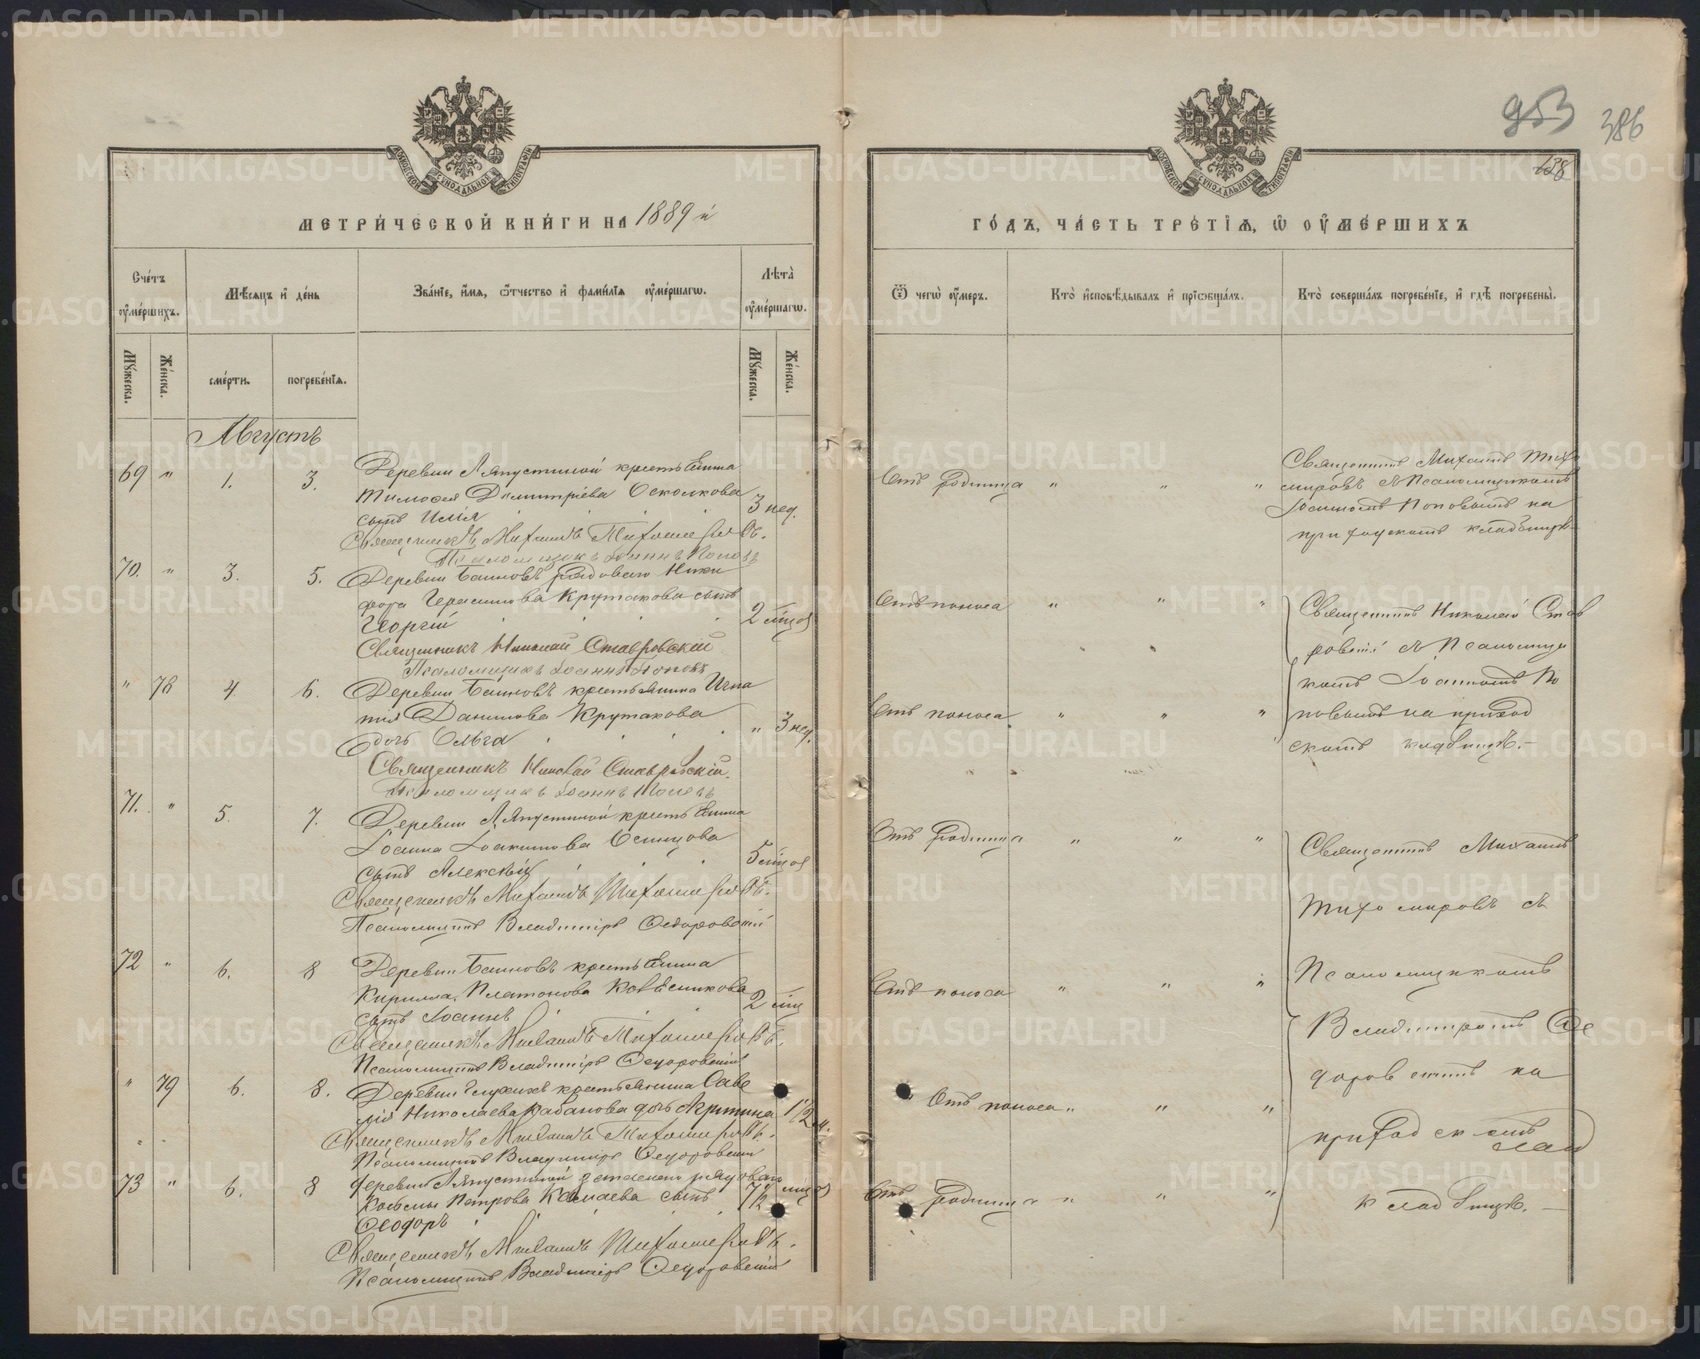 953 386
138
МЕТРИ́ЧЕСКОЙ КНИ́ГИ НА 1889 й
ГО́ДЪ, ЧА́СТЬ ТРЕ́ТІѦ, Ѿ ОУ҆МЕ́РШИХЪ
Сче́тъ оу҆ме́ршихъ.
Мѣ́сѧцъ и҆ де́нь
Зва́нїе, и҆́мѧ, ѻ҆́тчество и҆ фами́лїѧ оу҆ме́ршагѡ.
Лѣ́та оу҆ме́ршагѡ.
Ѿ чегѡ̀ оу҆́меръ.
Кто̀ и҆сповѣ́дывалъ и҆ прїѡбща́лъ.
Кто̀ соверша́лъ погребе́нїе, и҆ гдѣ̀ погребены̀.
Мꙋ́жеска.
Же́нска.
сме́рти.
погребе́нїѧ.
Мꙋ́жеска.
Же́нска.
Августъ
69 " 1. 3. Деревни Ляпустиной крестьянина
Тимофея Димитріева Осколкова
сынъ Илія 3 нед.
Священникъ Михаилъ Тихомировъ.
Псаломщикъ Іоаннъ Поповъ
Отъ родимца " " "
Священникъ Михаилъ Тихо
мировъ съ Псаломщикомъ
Іоанномъ Поповымъ на
приходскомъ кладбищѣ
70. " 3. 5. Деревни Баиновъ рядового Ники
фора Герасимова Крутакова сынъ
Георгій 2 мѣцов
Священникъ Николай Ставровскій
Псаломщикъ Іоаннъ Поповъ
Отъ поноса " " "
Священникъ Николай Став
ровскій съ Псаломщи
комъ Іоанномъ По
повымъ на приход
скомъ кладбищѣ.
" 78 4 6. Деревни Баиновъ крестьянина Игна
тія Данилова Крутакова
дочь Ольга " 3 нед.
Священникъ Николай Ставровскій.
Псаломщикъ Іоаннъ Поповъ
Отъ поноса " " "
71. " 5. 7. Деревни Ляпустиной крестьянина
Іоанна Іоакимова Осинцова
сынъ Алексѣй 5 мѣцов
Священникъ Михаилъ Тихомировъ.
Псаломщикъ Владиміръ Федоровскій
Отъ родимца " " "
Священникъ Михаилъ
Тихомировъ съ
Псаломщикомъ
Владиміромъ Фе
доровскимъ на
приходскомъ
кладбищѣ.
72 " 6. 8 Деревни Баиновъ крестьянина
Кирилла Платонова
сынъ Іоаннъ 2 мѣц
Священникъ Михаилъ Тихомировъ.
Псаломщикъ Владиміръ Федоровскій
Отъ поноса " " "
" 79 6. 8. Деревни крестьянина Саве
лія Николаева Кабанова дочь 1½ м.
Священникъ Михаилъ Тихомировъ.
Псаломщикъ Владиміръ Федоровскій
Отъ поноса " " "
73 " 6. 8 деревни Ляпустиной рядоваго
Косьмы Петрова сынъ 7½ мѣцов
Феодоръ
Священникъ Михаилъ Тихомировъ.
Псаломщикъ Владиміръ Федоровскій
Отъ родимца " " "
METRIKI.GASO-URAL.RU